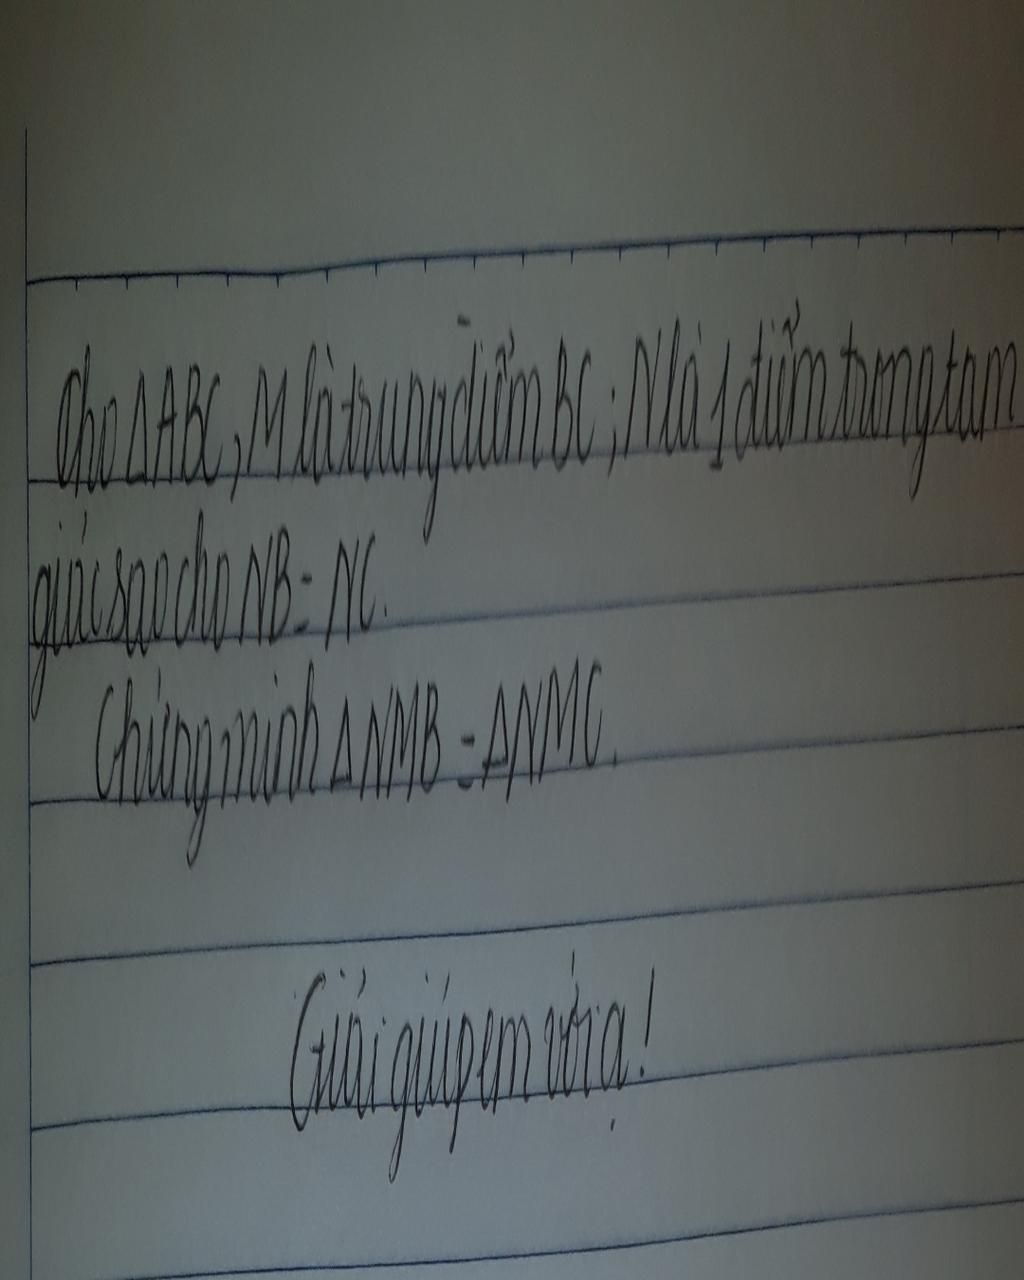 Cho ΔABC, M là trung điểm BC; N là 1 điểm trong tam
giác sao cho NB = NC.
Chứng minh ΔNMB = ΔNMC.
Giải giúp em với ạ!